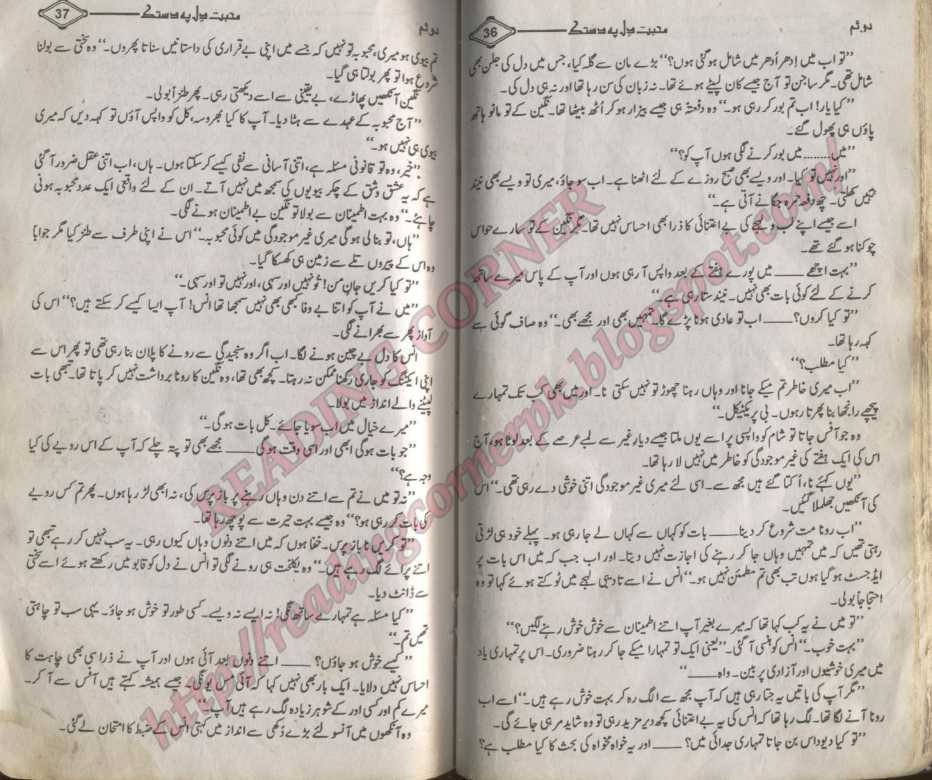 دوئم
محبت دل پہ دستک
36
’’تو اب میں اِدھر اُدھر میں شامل ہوگئی ہوں؟‘‘ بڑے مان سے گلہ کیا، جس میں دل کی جلن بھی
شامل تھی۔ مگر ساجن تو آج جیسے کان لپیٹے ہوئے تھا۔ نہ زبان کی سن رہا تھا اور نہ ہی دل کی۔
’’کیا یار! اب تم بور کر رہی ہو۔‘‘ وہ دفعتہً ہی جیسے بیزار ہو کر اُٹھ بیٹھا تھا۔ نگین کے تو مانو ہاتھ
پاؤں ہی پھول گئے۔
’’میں......... میں بور کرنے لگی ہوں آپ کو؟‘‘
’’اور نہیں تو کیا۔ اور ویسے بھی صبح روزے کے لئے اٹھنا ہے۔ اب سو جاؤ، میری تو ویسے بھی نیند
نہیں کھلتی۔ چھ دفعہ نمرہ جگانے آتی ہے۔‘‘
اسے جیسے اپنے لب و لہجے کی بے اعتنائی کا ذرا بھی احساس نہیں تھا۔ مگر نگین کے تو سارے حواس
چوکنا ہو گئے تھے۔
’’بہت اچھے ____ میں پورے ہفتے کے بعد واپس آ رہی ہوں اور آپ کے پاس میرے ساتھ
کرنے کے لئے کوئی بات بھی نہیں۔ نیند ستا رہی ہے۔‘‘
’’تو کیا کروں؟ ____ اب تو عادی ہونا پڑے گا۔ تمہیں بھی اور مجھے بھی۔‘‘ وہ صاف گوئی سے
کہہ رہا تھا۔
’’کیا مطلب؟‘‘
’’اب میری خاطر تم میکے جانا اور وہاں رہنا چھوڑ تو نہیں سکتی نا۔ اور میں بھی کب تک تمہارے
پیچھے رانجھا بنا پھرتا رہوں۔ بی پریکٹیکل۔‘‘
وہ جو آفس جاتا تو شام کو واپسی پر اسے یوں ملتا جیسے دیارِ غیر سے لمبے عرصے کے بعد لوٹا ہو، آج
اس کی ایک ہفتے کی غیر موجودگی کو خاطر میں نہیں لا رہا تھا۔
’’یوں کہئے نا، اُکتا گئے ہیں مجھ سے۔ اسی لئے میری غیر موجودگی اتنی خوشی دے رہی تھی۔‘‘ اس
کی آنکھیں جھلملا گئیں۔
’’اب رونا مت شروع کر دینا ____ بات کو کہاں سے کہاں لے جا رہی ہو۔ پہلے خود ہی لڑتی
رہتی تھیں کہ میں تمہیں وہاں جا کر رہنے کی اجازت نہیں دیتا۔ اور اب جب کہ میں اس بات پر
ایڈجسٹ ہو گیا ہوں تب بھی تم مطمئن نہیں ہو۔‘‘ انس نے اسے تادیبی لہجے میں ٹوکتے ہوئے کہا تو وہ
احتجاجاً بولی۔
’’تو میں نے یہ کب کہا تھا کہ میرے بغیر آپ اتنے اطمینان سے خوش خوش رہنے لگیں؟‘‘
’’بہت خوب۔‘‘ انس کو ہنسی آ گئی۔ ’’یعنی ایک تو تمہارا میکے جا کر رہنا ضروری۔ اس پر تمہاری یاد
میں میری خوشیوں اور آزادی پر بین۔ واہ ____‘‘
’’مگر آپ کی باتیں یہ جتا رہی ہیں کہ آپ مجھ سے الگ رہ کر بہت خوش رہے ہیں۔‘‘ اسے اب
رونا آنے لگا تھا۔ لگ رہا تھا کہ انس کی یہ بے اعتنائی کچھ دیر مزید رہی تو وہ شاید مر ہی جائے گی۔
’’تو کیا دیوداس بن جاتا تمہاری جدائی میں؟ ____ اور یہ خواہ مخواہ کی بحث کا کیا مطلب ہے؟
دوئم
محبت دل پہ دستک
37
تم بیوی ہو میری، محبوبہ تو نہیں کہ جسے میں اپنی بے قراری کی داستانیں سناتا پھروں۔‘‘ وہ سختی سے بولنا
شروع ہوا تو پھر بولتا ہی گیا۔
نگین آنکھیں پھاڑے، بے یقینی سے اسے دیکھتی رہی۔ پھر طنزاً بولی۔
’’آج محبوبہ کے عہدے سے ہٹا دیا۔ آپ کا کیا بھروسہ، کل کو واپس آؤں تو کہہ دیں کہ میری
بیوی ہی نہیں ہو۔‘‘
’’خیر، وہ تو قانونی مسئلہ ہے، اتنی آسانی سے نفی کیسے کر سکتا ہوں۔ ہاں، اب اتنی عقل ضرور آ گئی
ہے کہ یہ عشق وشق کے چکر بیویوں کی سمجھ میں نہیں آتے۔ ان کے لئے واقعی ایک عدد محبوبہ ہونی
چاہئے۔‘‘ وہ بہت اطمینان سے بولا تو نگین بے اطمینان ہونے لگی۔
’’ہاں، تو بنا لی ہوگی میری غیر موجودگی میں کوئی محبوبہ۔‘‘ اس نے اپنی طرف سے طنز کیا مگر جواباً
وہ اس کے پیروں تلے سے زمین ہی کھسکا گیا۔
’’تو کیا کریں جانِ من! تُو نہیں اور سہی، اور نہیں تو اور سہی۔‘‘
’’میں نے آپ کو اتنا بے وفا کبھی بھی نہیں سمجھا تھا انس! آپ ایسا کیسے کر سکتے ہیں؟‘‘ اس کی
آواز پھر سے بھرانے لگی۔
انس کا دل بے چین ہونے لگا۔ اب اگر وہ سنجیدگی سے رونے کا پلان بنا رہی تھی تو پھر اس سے
اپنی ایکٹنگ کو جاری رکھنا ممکن نہ رہتا۔ کچھ بھی تھا، وہ نگین کا رونا برداشت نہیں کر پاتا تھا۔ تبھی بات
لپیٹنے والے انداز میں بولا۔
’’میرے خیال میں اب سویا جائے۔ کل بات ہوگی۔‘‘
’’جو بات ہوگی ابھی اور اسی وقت ہوگی ____ مجھے بھی تو پتہ چلے کہ آپ کے اس رویے کی کیا
وجہ ہے؟‘‘
’’نہ تو میں نے تم سے اتنے دن وہاں رہنے پر باز پرس کی، نہ ابھی لڑ رہا ہوں۔ پھر تم کس رویے
کی بات کر رہی ہو؟‘‘ وہ جیسے بہت حیرت سے پوچھ رہا تھا۔
’’تو کریں نا باز پرس۔ خفا ہوں کہ میں اتنے دنوں وہاں کیوں رہی۔ یہ سب نہیں کر رہے تبھی تو
اتنے پرائے لگ رہے ہیں۔‘‘ وہ یکلخت ہی رونے لگی تو انس نے دل کو قابو میں رکھتے ہوئے اسے سختی
سے ڈانٹ دیا۔
’’کیا مسئلہ ہے تمہارے ساتھ نگی! نہ ایسے نہ ویسے۔ کسی طور تو خوش ہو جاؤ۔ یہی سب تو چاہتی
تھیں تم۔‘‘
’’کیسے خوش ہو جاؤں؟ ____ اتنے دنوں بعد آئی ہوں اور آپ نے ذرا سی بھی چاہت کا
احساس نہیں دلایا۔ ایک بار بھی نہیں کہا کہ آئی مس یو نگی۔ جیسے ہمیشہ کہتے ہیں آفس سے آ کر۔
میرے کم اور کسی اور کے شوہر زیادہ لگ رہے ہیں آپ۔‘‘
وہ آنکھوں میں آنسو لئے بڑے دُکھی سے انداز میں کہتی انس کے ضبط کا امتحان لے گئی۔
READING CORNER
http://readingcornerpk.blogspot.com/